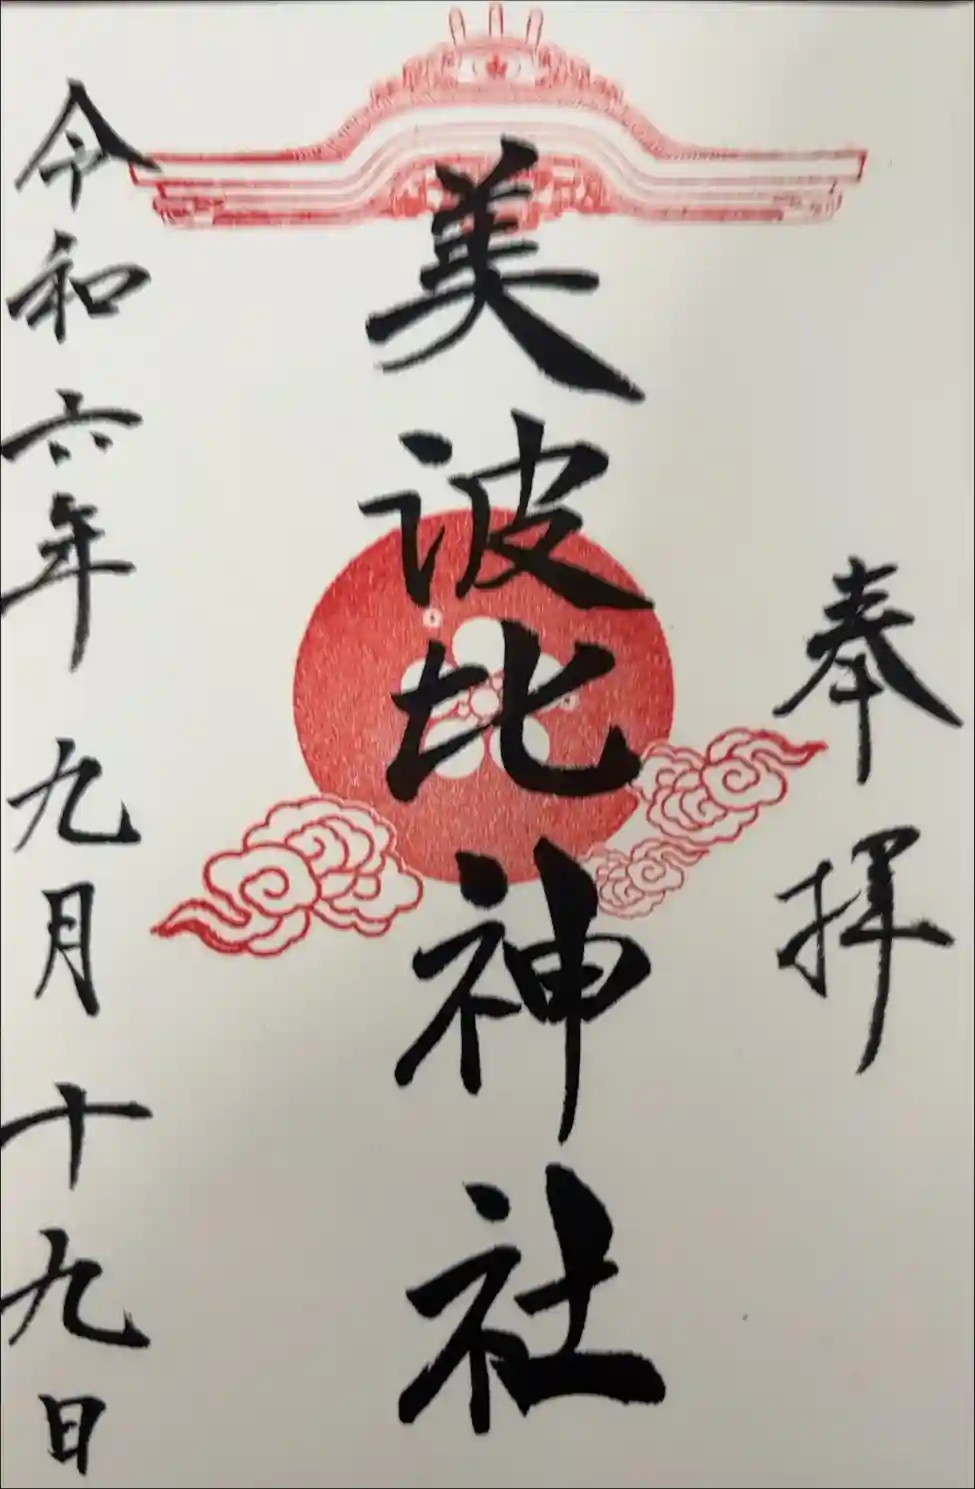 奉拝
美波比神社
令和六年九月十九日